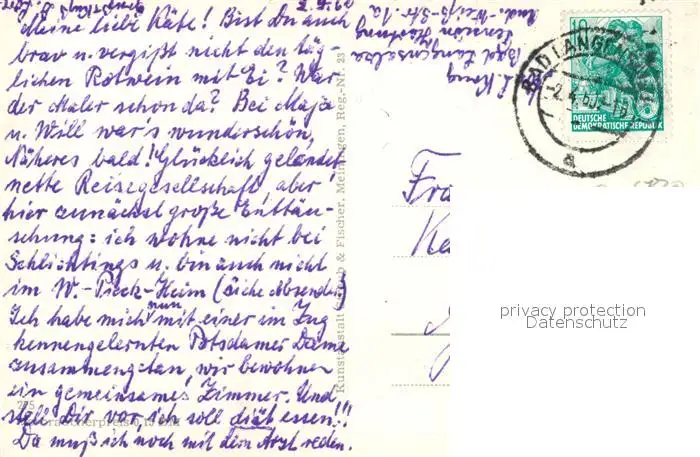 Meine liebe Käte! Bist Du auch
brav u. vergißt nicht den täg-
lichen Rotwein mit Ei? War
der Maler schon da? Bei Maja
u. Will war's wunderschön,
Näheres bald! Glücklich gelandet,
nette Reisegesellschaft, aber
hier zunächst große Enttäu-
schung: ich wohne nicht bei
Schlichtings u. bin auch nicht
im W.-Pieck-Heim (siehe Absender)
Ich habe mich nun mit einer im Zug
kennengelernten Potsdamer Dame
zusammengetan, wir bewohnen
ein gemeinsames Zimmer. Und
stell' Dir vor ich soll diät essen!!!
Da muß ich noch mit dem Arzt reden.
Bad Langensalza
Kunstanstalt & Fischer, Meiningen, Reg.-Nr. 23
BAD LANGENSALZA
-2.4.60
a
10
DEUTSCHE
DEMOKRATISCHE REPUBLIK
Fra
privacy protection
Datenschutz